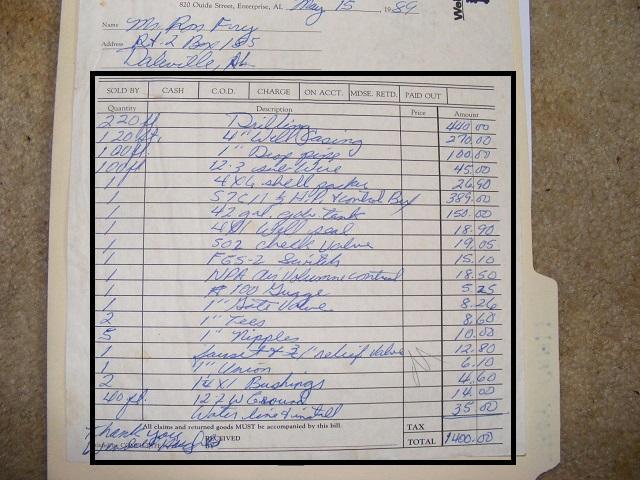 820 Ouida Street, Enterprise, AL May 15 1989
Name Mr. Ron Fry
Address Rt-2 Box 185
Daleville, AL
SOLD BY CASH C.O.D. CHARGE ON ACCT. MDSE. RETD. PAID OUT
Quantity Description Price Amount
220 ft Drilling 440.00
120 ft. 4" Well Casing 270.00
100 ft 1" Drop pipe 100.00
100 ft 12-3 sub wire 45.00
1 4X1 shell packer 26.90
1 H.P. & Control Box 389.00
1 42 gal. galv tank 150.00
1 4X1 Well seal 18.90
1 502 check valve 19.05
1 FGS-2 Switch 15.10
1 NPA Air Volume control 18.50
1 # 100 Guage 5.25
1 1" Gate Valve 8.26
2 1" Tees 8.60
5 1" Nipples 10.00
1 fauset & 3/4 relief valve 12.80
1 1" Union 6.10
2 1¼X1 Bushings 4.60
40 ft. 12 2 W Ground 14.00
Water line & install 35.00
All claims and returned goods MUST be accompanied by this bill.
TAX
Thank you
RECEIVED
BY
TOTAL 1400.00